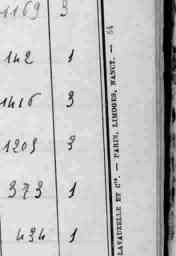 1169 3
142 1
1416 3
1203 3
373 1
434 1
LAVAUZELLE ET Cie. — PARIS, LIMOGES, NANCY. — 54